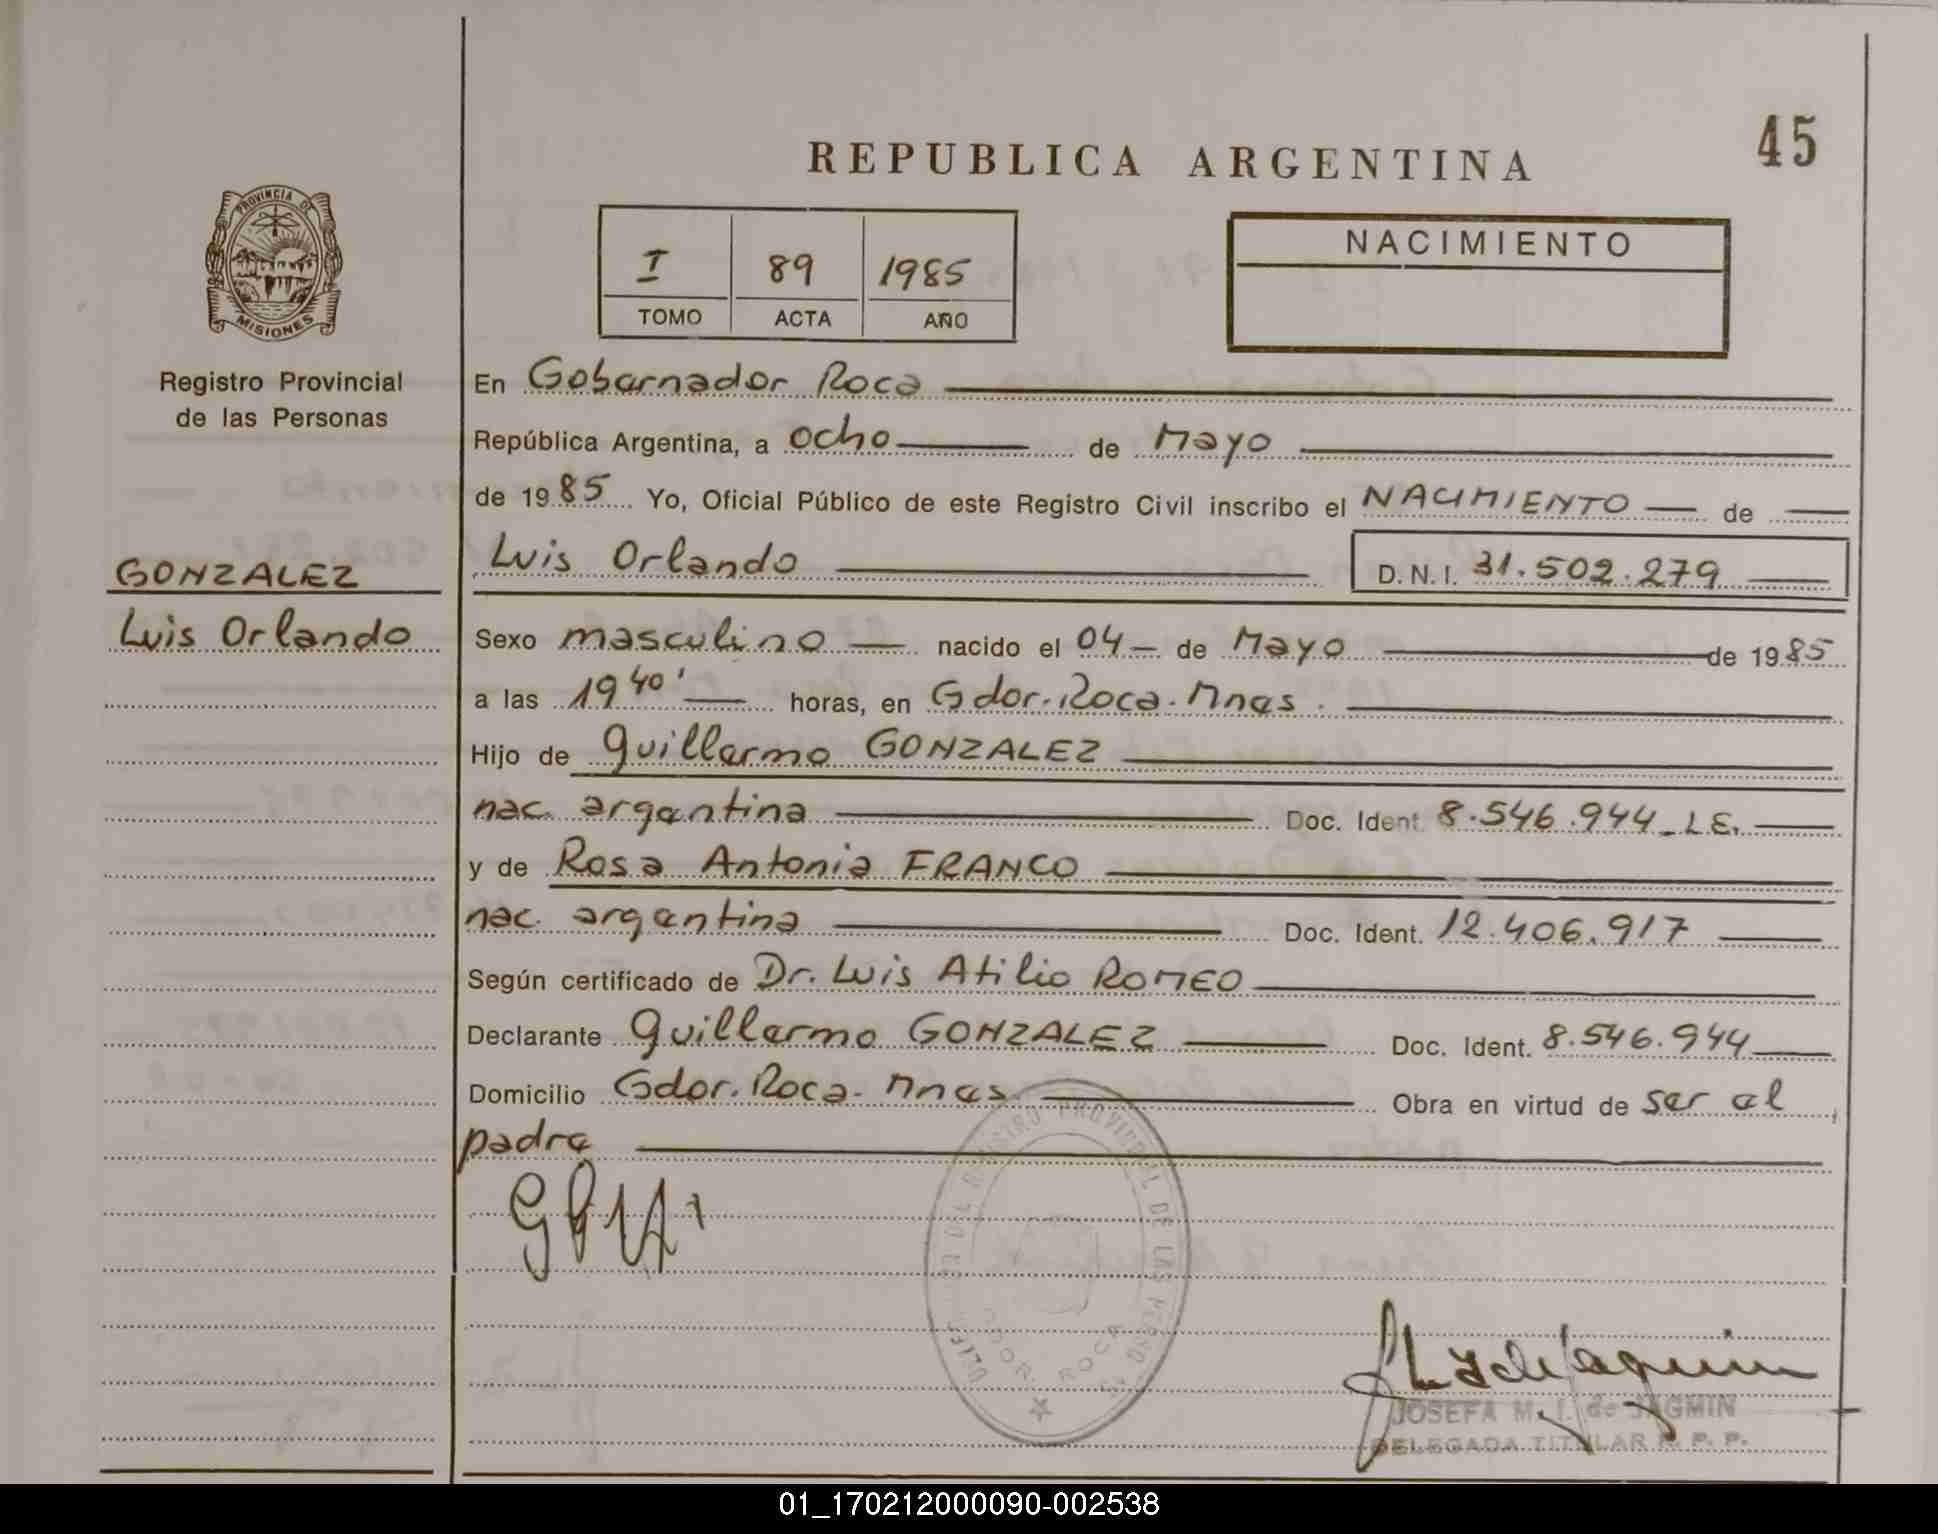 45
REPUBLICA ARGENTINA
PROVINCIA DE
MISIONES
I 89 1985
TOMO ACTA AÑO
NACIMIENTO
Registro Provincial
de las Personas
GONZALEZ
Luis Orlando
En Gobernador Roca
República Argentina, a ocho de Mayo
de 1985 Yo, Oficial Público de este Registro Civil inscribo el NACIMIENTO de
Luis Orlando D.N.I. 31.502.279
Sexo masculino nacido el 04 de Mayo de 1985
a las 19 40' horas, en Gdor. Roca. Mnes.
Hijo de Guillermo GONZALEZ
nac. argentina Doc. Ident. 8.546.944 L.E.
y de Rosa Antonia FRANCO
nac. argentina Doc. Ident. 12.406.917
Según certificado de Dr. Luis Atilio ROMEO
Declarante Guillermo GONZALEZ Doc. Ident. 8.546.944
Domicilio Gdor. Roca. Mnes. Obra en virtud de ser el
padre
REGISTRO PROVINCIAL DE LAS PERSONAS
GDOR. ROCA
JOSEFA M. I. de JAGMIN
DELEGADA TITULAR R. P. P.
01_170212000090-002538